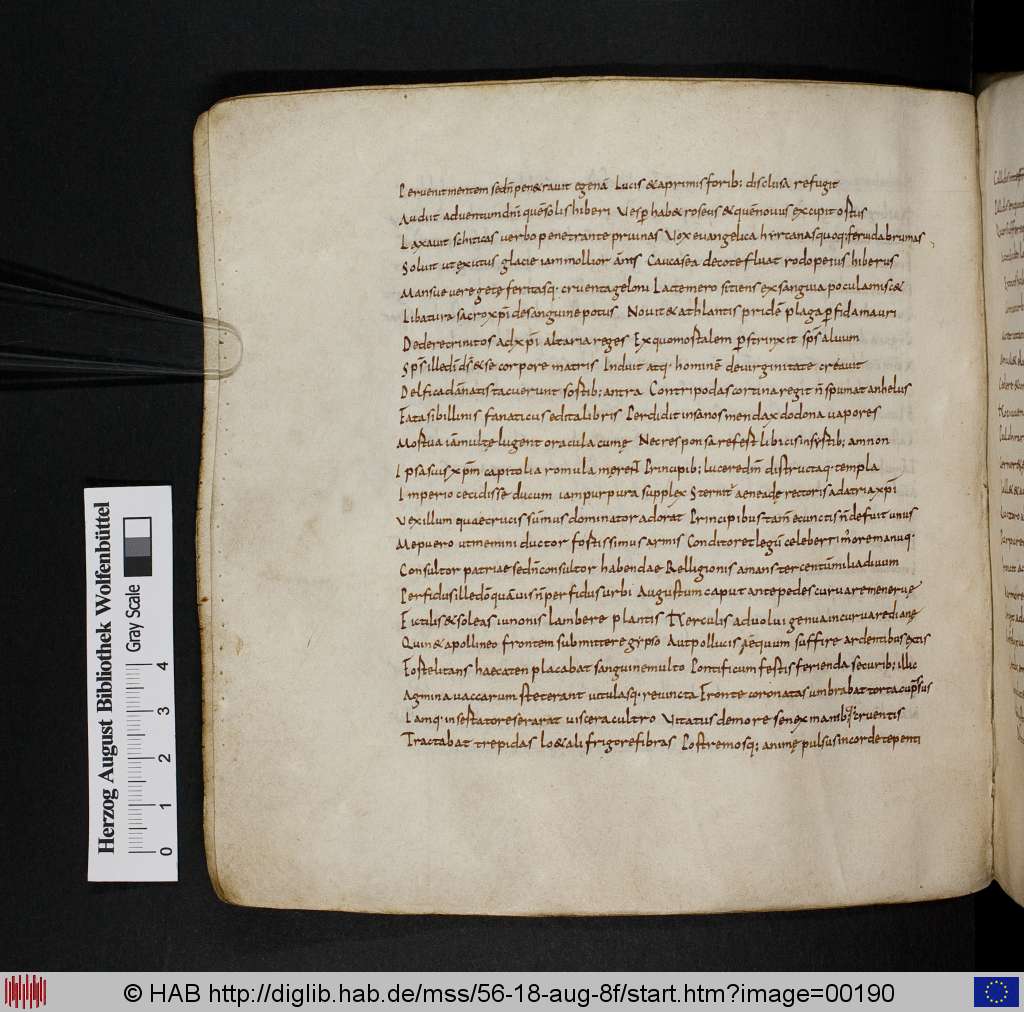 Pervenit mentem sedñ penetravit egenã Lucis & a primis forib; disclusa refugit
Audiit adventum dñi quẽ solis hiberi Vesper hab& roseus & quẽ novus excipit ortus
Laxavit schiticas verbo penetrante pruinas Vox evangelica hyrcanas quoq; fervida brumas
Solvit ut exutus glacie iam mollior ãnis Caucasea de cote fluat rodopeius hiberus
Mansuevere getę feritasq. cruenta geloni Lacte mero sitiens exsanguia pocula misc&
Libatura sacros xp̃i de sanguine potus Novit & athlantis pridẽ plaga perfida mauri
Dedere crinitos ad xp̃i altaria reges Ex quo mortalem perstrinxit sp̃s alvum
Sp̃s ille dĩ ds̃ & se corpore matris Induit atq. hominẽ de virginitate creavit
Delfica dãnatis tacuerunt sortib; antra Non tripodas cortina regit ñ spumat anhelus
Fata sibillinis fanaticus edita libris Perdidit insanos mendax dodona vapores
Mortua iã multę lugent oracula cumę Nec responsa refert libicis in syrtib; ammon
Ipsa suis xp̃m capitolia romula męrent Principib; lucere dm̃ distructaq. templa
Imperio cecidisse ducum iam purpura supplex Sternit aeneadę rectoris ad atria xp̃i
Vexillum quae crucis sũmus dominator adorat Principibus tam̃ e cunctis ñ defuit unus
Me puero ut memini ductor fortissimus armis Conditor et legũ celeberrimus ore manuq.
Consultor patriae sed ñ consultor habendae Relligionis amans tercentũ milia divum
Perfidus ille dõ quãvis ñ perfidus urbi Augustum caput ante pedes curvare menervę
Fictilis & soleas iunonis lambere plantis Herculis advolui genua incurvare dianę
Quin & apollineo frontem submittere gypso Aut pollucis aequum suffire ardentibus extis
Forte litans haecaten placabat sanguine multo Pontificum festis ferienda securib; illic
Agmina vaccarum steterant vitulasq. revincta Fronte coronatas umbrabat torta cupressus
Iamq. insertato reserarat viscera cultro Vitatus de more senex manibusq; cruentis
Tractabat trepidas l&ali frigore fibras Postremosq; animę pulsus in corde tepenti
Herzog August Bibliothek Wolfenbüttel
Gray Scale
0 1 2 3 4
© HAB http://diglib.hab.de/mss/56-18-aug-8f/start.htm?image=00190